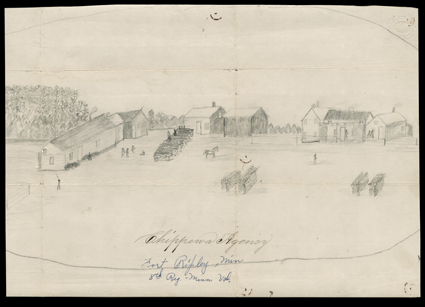 Chippewa Agency
Fort Ripley, Minn
8th Reg Minn Vol